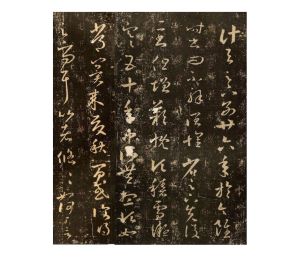 計與足下別廿六年於今雖
時書問不解闊懷省足下先後
二書但增歎慨頃積雪凝
寒五十年中所無想頃如
常冀來夏秋間或復得
足下問耳比者悠悠如何可言